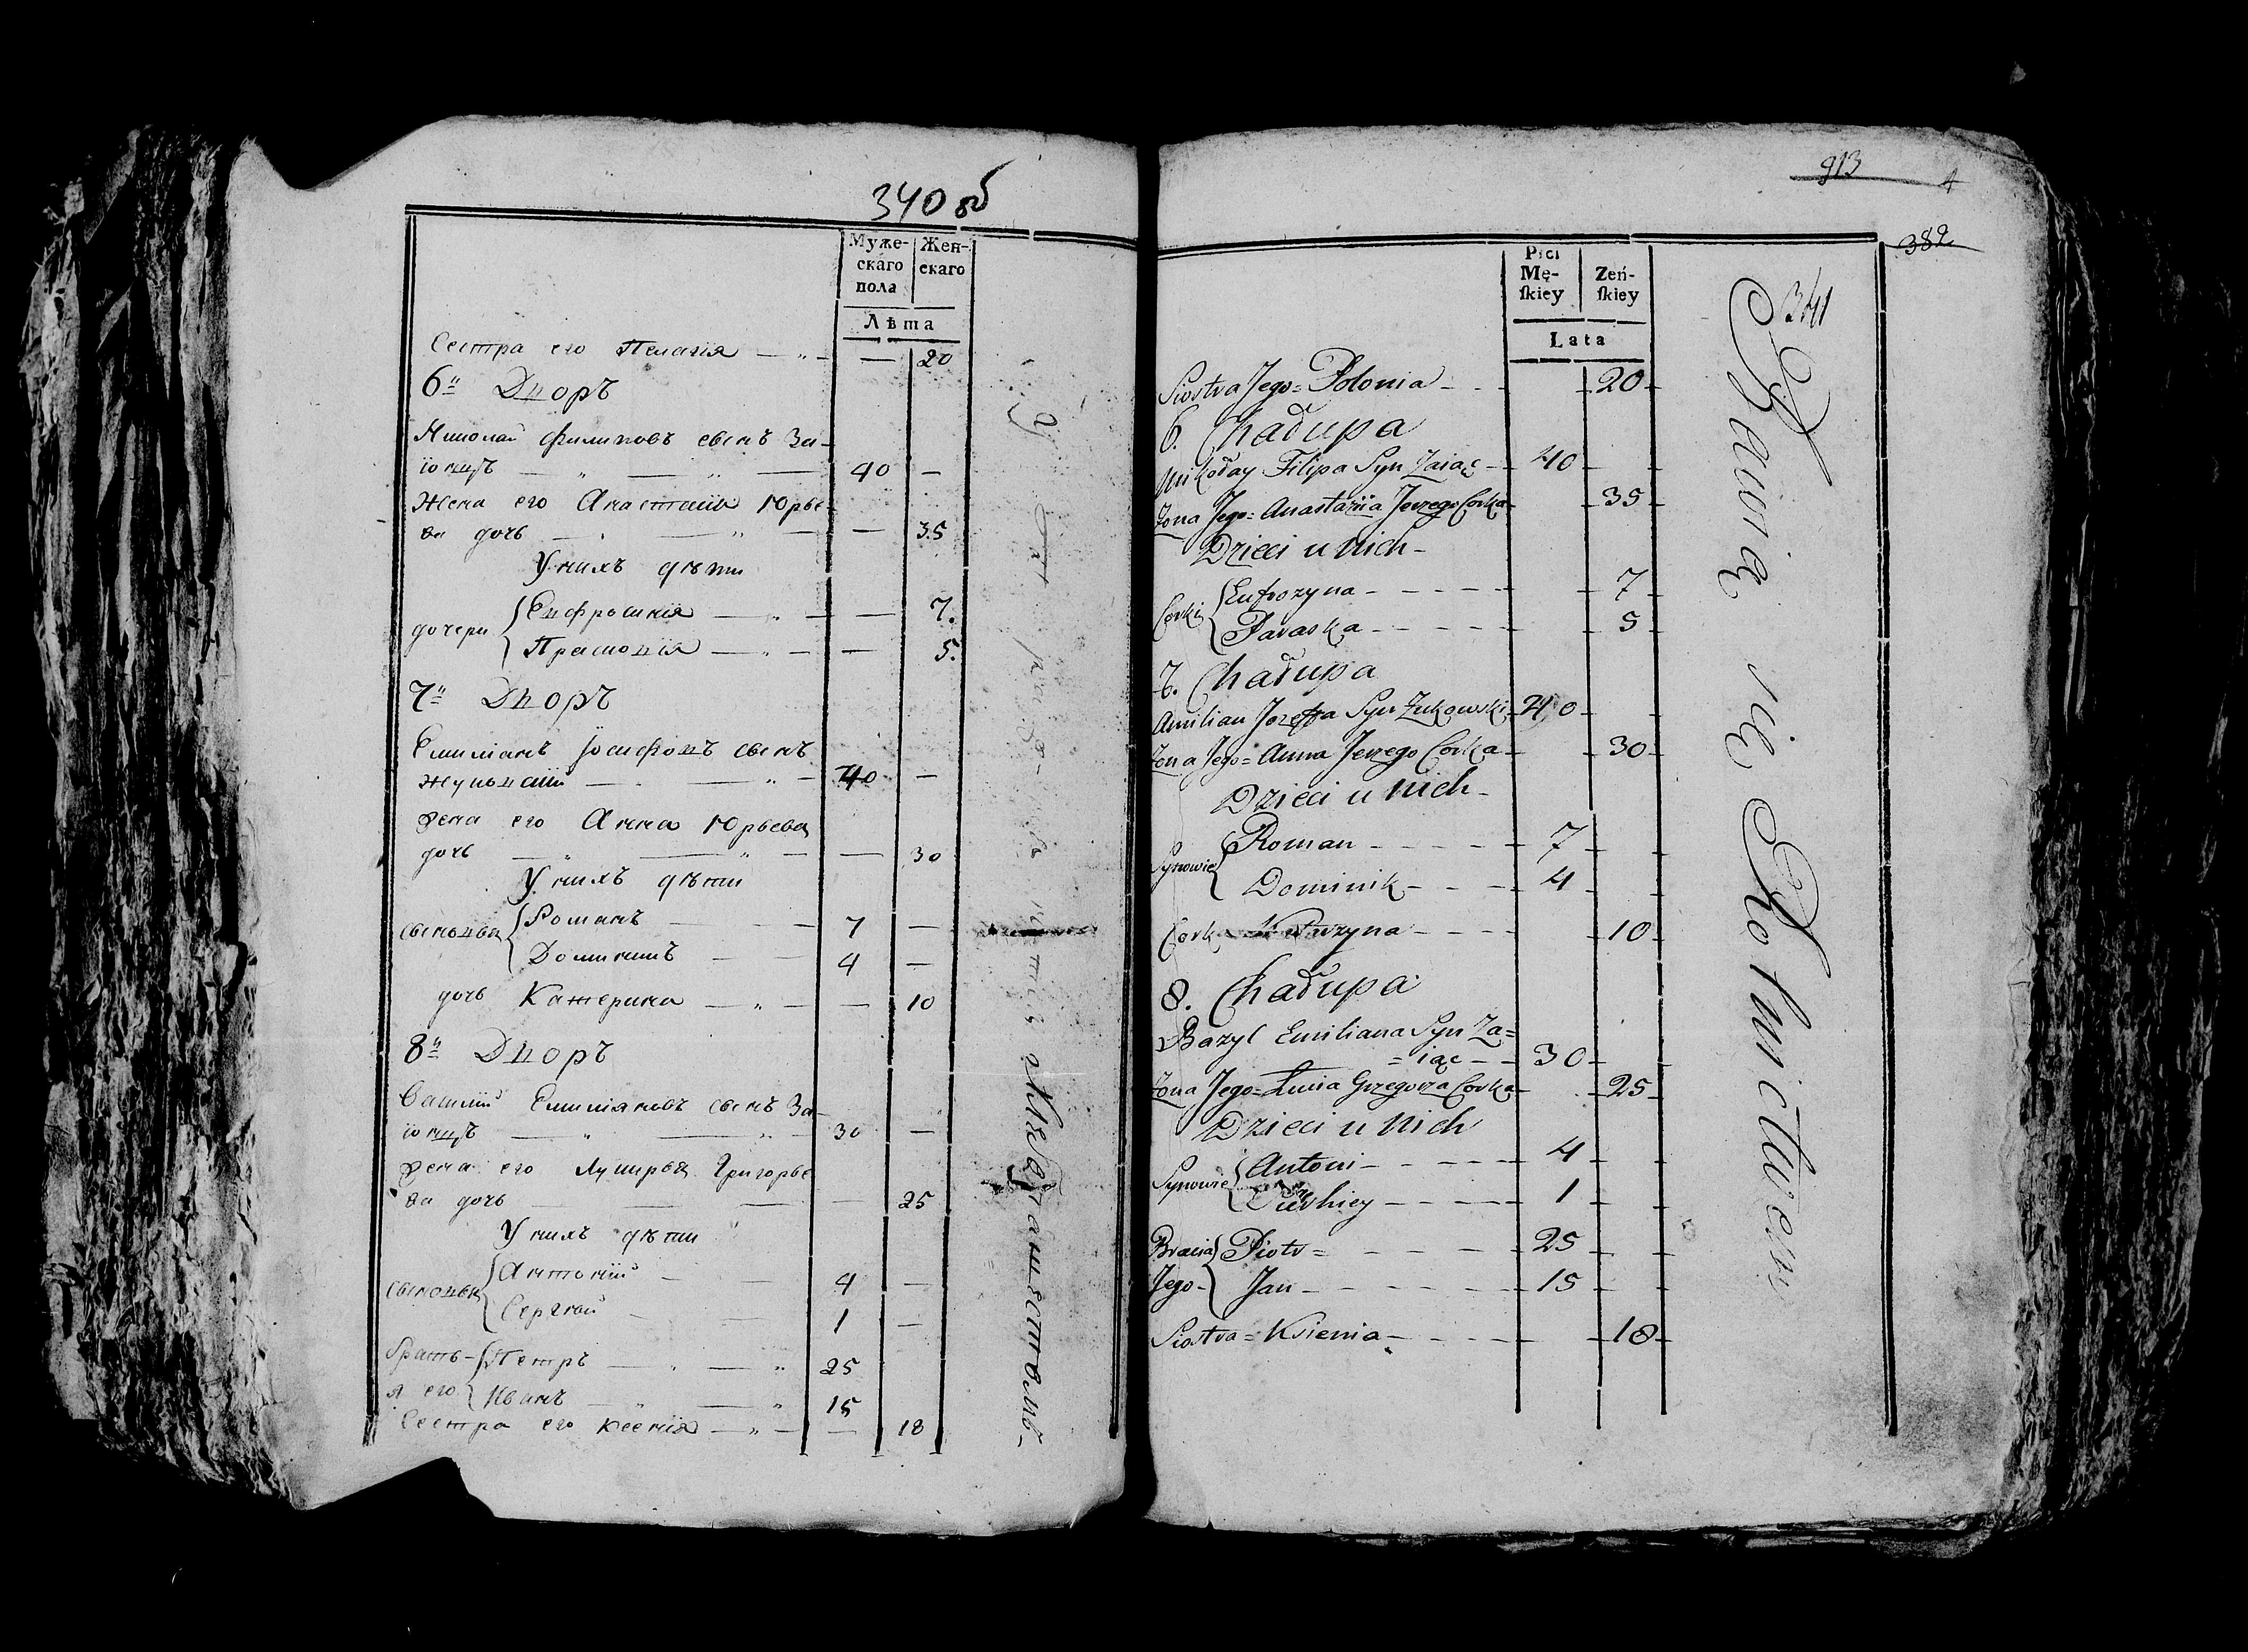 340 об
Муже-
скаго
пола
Жен-
скаго
Лѣта
Сестра его Пелагія — 20
6й Дворъ
Николай Филиповъ сынъ За-
іонцъ — 40 —
Жена его Анастасія Юрье-
ва дочь — 35
У нихъ дѣти
дочери { Евфросинія — 7.
Прасковія — 5.
7й Дворъ
Емиліанъ Іосифовъ сынъ
Жуковскій — 40 —
Жена его Анна Юрьева
дочь — 30
У нихъ дѣти
сыновья { Романъ — 7 —
Доминикъ — 4 —
дочь Катерина — 10
8й Дворъ
Василій Емиліановъ сынъ За-
іонцъ — 30 —
Жена его Григорье
ва дочь — 25
У нихъ дѣти
сыновья { Антоній — 4 —
Сергѣй — 1 —
Брать- { Петръ — 25
я его { Иванъ — 15
Сестра его Ксенія — 18
913
4
389
341
Płci
Mę-
ſkiey
Zeń-
ſkiey
Lata
Siostra Jego = Polonia - - 20
6. Chałupa
Mikołay Filipa Syn Zaiąc - 40
Zona Jego = Anastazija Jerzego Corka 35
Dzieci u Nich -
Corki { Eufrozyna - - - - 7
Paraska - - - - 5
7. Chałupa
Amilian Jozefa Syn Zukowski - 40
Zona Jego = Anna Jerzego Corka - 30
Dzieci u Nich -
Synowie { Roman - - - - 7
Dominik - - - 4
Corka Katarzyna - - - 10
8. Chałupa
Bazyl Emiliana Syn Za=
= iąc - - 30
Zona Jego = Grzegorza Corka 25
Dzieci u Nich
Synowie { Antoni - - - - 4
Sierhiey - - - - 1
Bracia { Piotr = - - - 25
Jego - { Jan - - - - 15
Siostra = Ksienia - - - - 18
Bawią się Rolnictwem